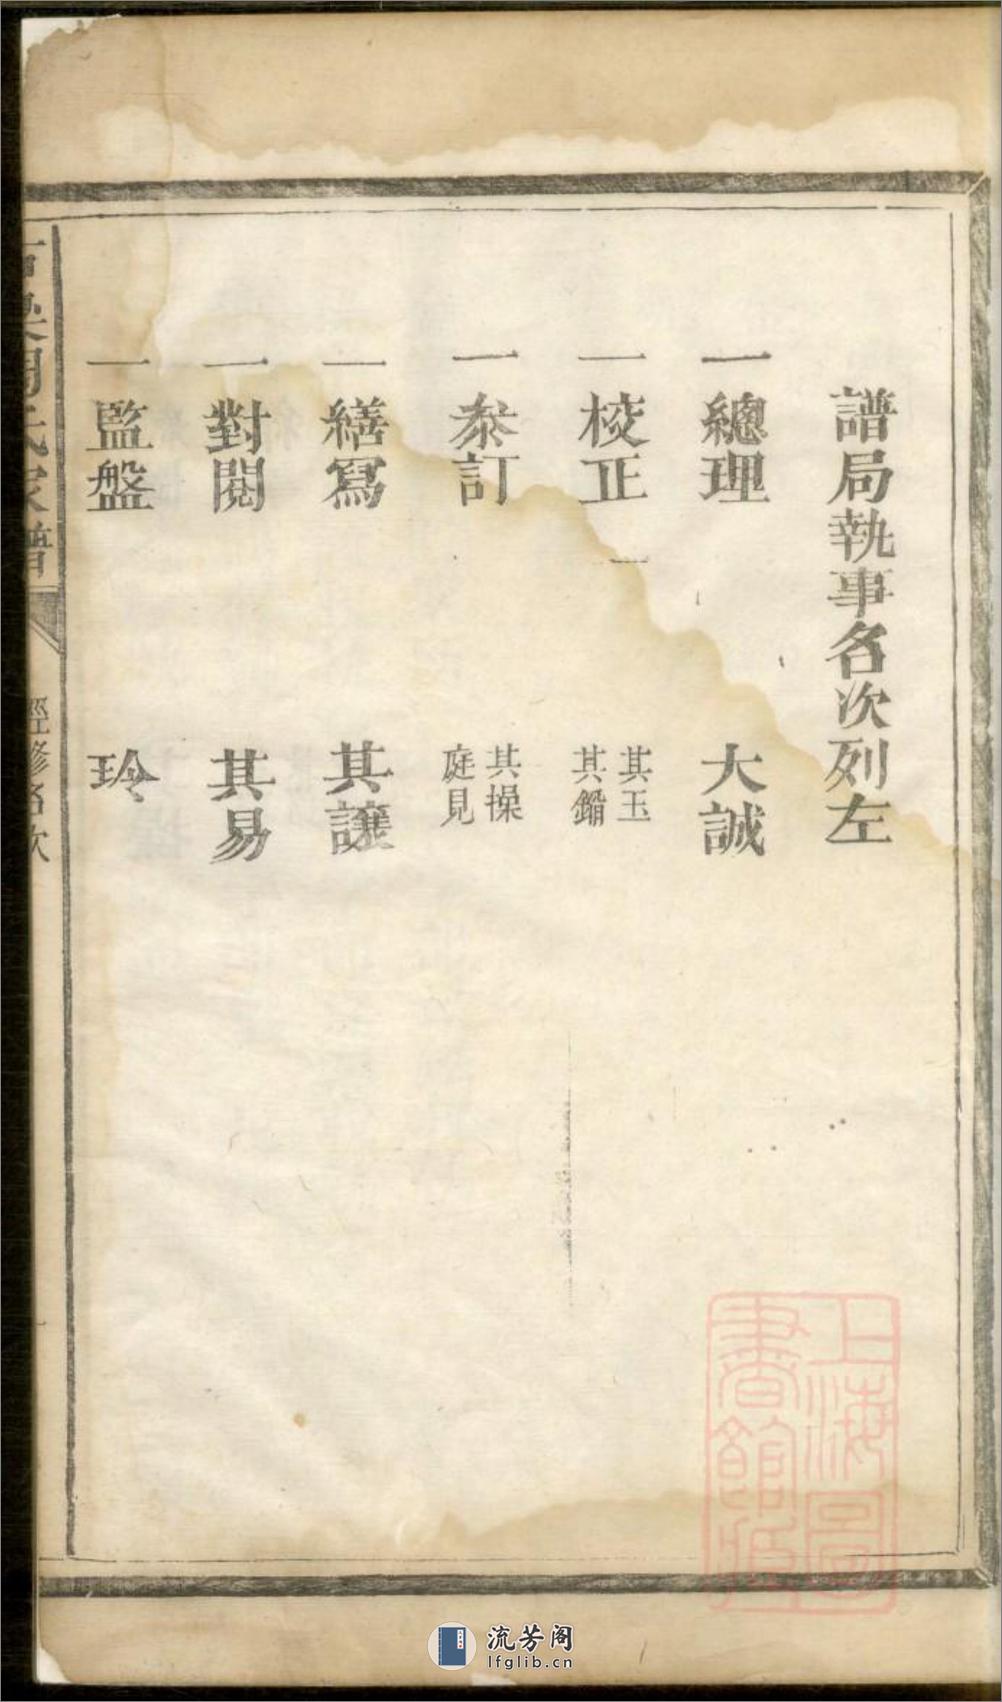 譜局執事名次列左
一總理 大誠
一校正 其玉 其鏽
一叅訂 其操 庭見
一繕寫 其讓
一對閱 其易
一監盤 玲
周氏家譜
經修名次
上海圖書館藏
流芳阁
lfglib.cn